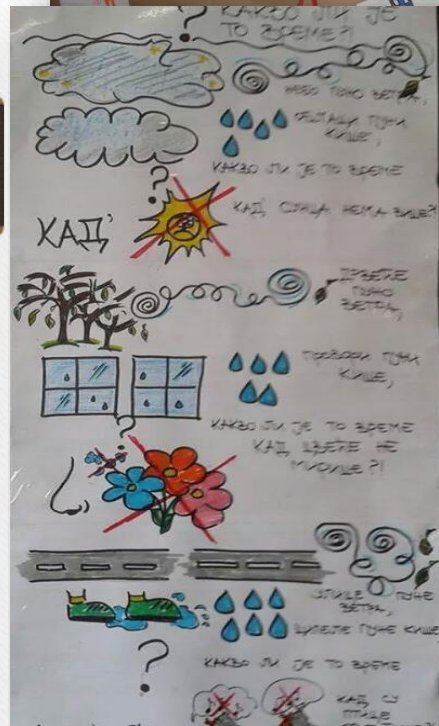 ? КАКВО ЛИ ЈЕ
ТО ВРЕМЕ?!
НЕБО ПУНО ВЕТРА,
ОБЛАЦИ ПУНИ
КИШЕ,
?
КАКВО ЛИ ЈЕ ТО ВРЕМЕ
КАД'
КАД' СУНЦА НЕМА ВИШЕ?!
ДРВЕЋЕ
ПУНО
ВЕТРА,
ПРОЗОРИ ПУНИ
КИШЕ,
?
КАКВО ЛИ ЈЕ ТО ВРЕМЕ
КАД ЦВЕЋЕ НЕ
МИРИШЕ?!
УЛИЦЕ ПУНЕ
ВЕТРА,
ЦИПЕЛЕ ПУНЕ КИШЕ
?
КАКВО ЛИ ЈЕ ТО ВРЕМЕ
КАД СУ
ПТИЦЕ